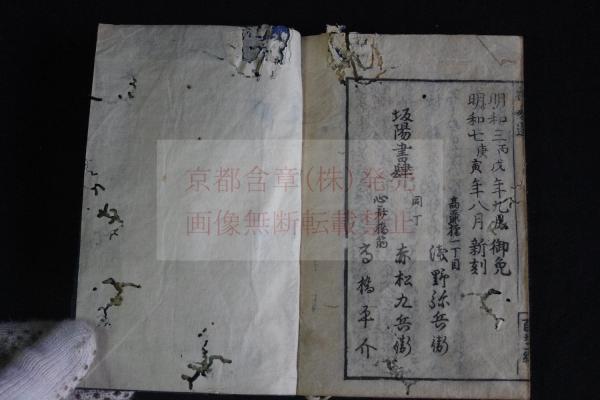 明和三丙戌年九月御免
明和七庚寅年八月新刻
坂陽書肆
高麗橋一丁目
淺野弥兵衛
同丁
赤松九兵衛
心斎橋筋
高橋平介
京都含章(株)発売
画像無断転載禁止